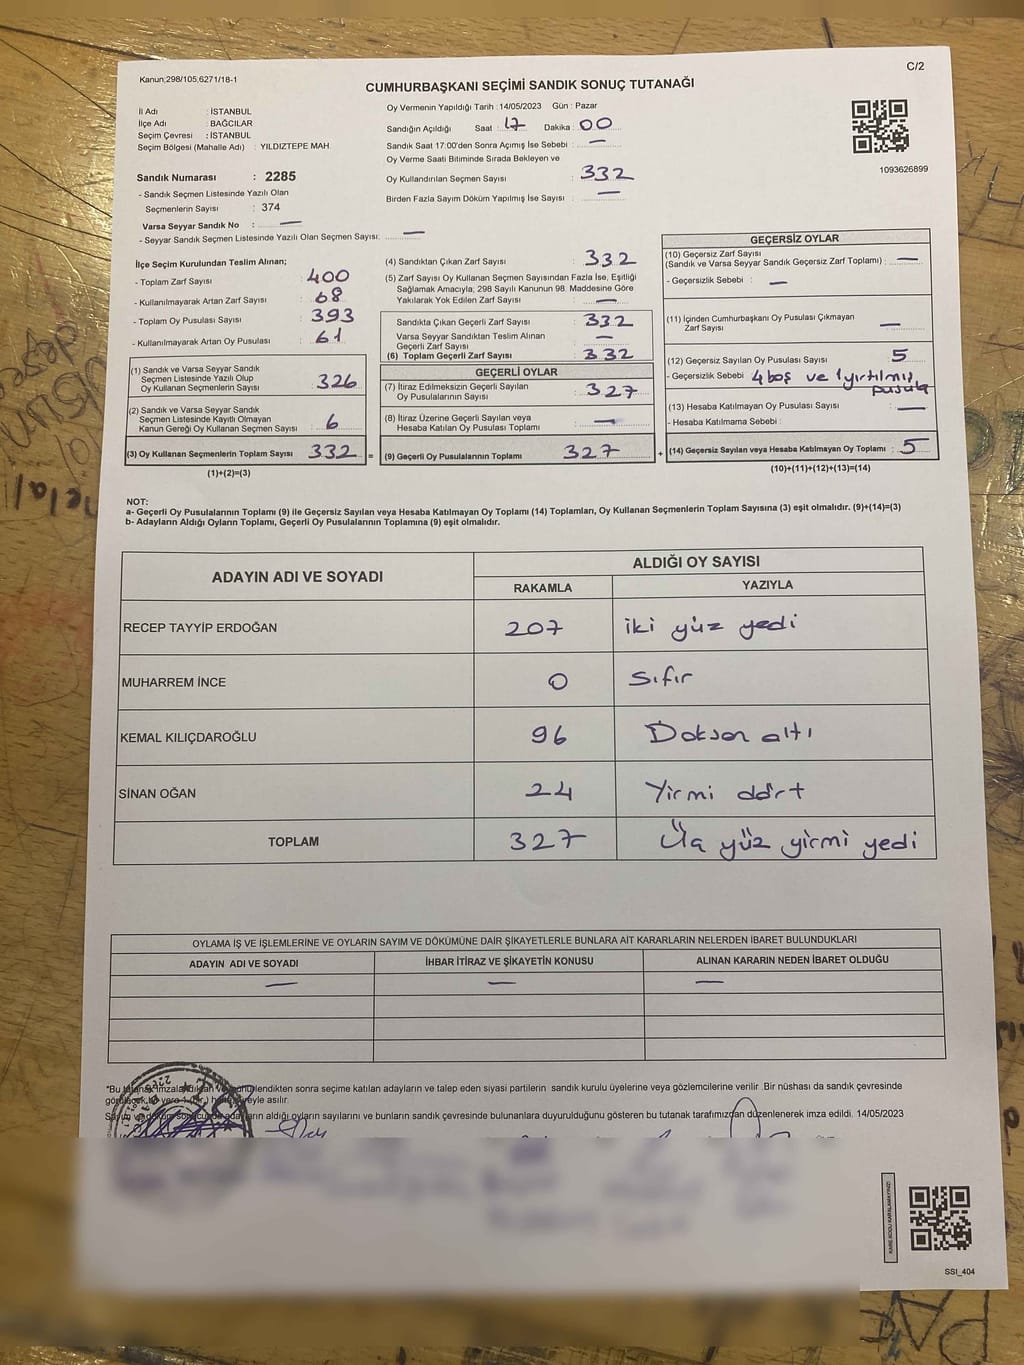 Kanun;298/105,6271/18-1
C/2
CUMHURBAŞKANI SEÇİMİ SANDIK SONUÇ TUTANAĞI
İl Adı : İSTANBUL
İlçe Adı : BAĞCILAR
Seçim Çevresi : İSTANBUL
Seçim Bölgesi (Mahalle Adı) : YILDIZTEPE MAH.
Sandık Numarası : 2285
- Sandık Seçmen Listesinde Yazılı Olan
Seçmenlerin Sayısı : 374
Varsa Seyyar Sandık No : —
- Seyyar Sandık Seçmen Listesinde Yazılı Olan Seçmen Sayısı: —
Oy Vermenin Yapıldığı Tarih : 14/05/2023 Gün : Pazar
Sandığın Açıldığı Saat : 17 Dakika : 00
Sandık Saat 17:00'den Sonra Açımış İse Sebebi : —
Oy Verme Saati Bitiminde Sırada Bekleyen ve
Oy Kullandırılan Seçmen Sayısı : 332
Birden Fazla Sayım Döküm Yapılmış İse Sayısı : —
1093626899
İlçe Seçim Kurulundan Teslim Alınan;
- Toplam Zarf Sayısı : 400
- Kullanılmayarak Artan Zarf Sayısı : 68
- Toplam Oy Pusulası Sayısı : 393
- Kullanılmayarak Artan Oy Pusulası : 61
(1) Sandık ve Varsa Seyyar Sandık
Seçmen Listesinde Yazılı Olup
Oy Kullanan Seçmenlerin Sayısı : 326
(2) Sandık ve Varsa Seyyar Sandık
Seçmen Listesinde Kayıtlı Olmayan
Kanun Gereği Oy Kullanan Seçmen Sayısı : 6
(3) Oy Kullanan Seçmenlerin Toplam Sayısı : 332 =
(1)+(2)=(3)
(4) Sandıktan Çıkan Zarf Sayısı : 332
(5) Zarf Sayısı Oy Kullanan Seçmen Sayısından Fazla İse, Eşitliği
Sağlamak Amacıyla; 298 Sayılı Kanunun 98. Maddesine Göre
Yakılarak Yok Edilen Zarf Sayısı : —
Sandıkta Çıkan Geçerli Zarf Sayısı : 332
Varsa Seyyar Sandıktan Teslim Alınan
Geçerli Zarf Sayısı : —
(6) Toplam Geçerli Zarf Sayısı : 332
GEÇERLİ OYLAR
(7) İtiraz Edilmeksizin Geçerli Sayılan
Oy Pusulalarının Sayısı : 327
(8) İtiraz Üzerine Geçerli Sayılan veya
Hesaba Katılan Oy Pusulası Toplamı : —
(9) Geçerli Oy Pusulalarının Toplamı : 327 +
GEÇERSİZ OYLAR
(10) Geçersiz Zarf Sayısı
(Sandık ve Varsa Seyyar Sandık Geçersiz Zarf Toplamı) : —
- Geçersizlik Sebebi : —
(11) İçinden Cumhurbaşkanı Oy Pusulası Çıkmayan
Zarf Sayısı : —
(12) Geçersiz Sayılan Oy Pusulası Sayısı : 5
- Geçersizlik Sebebi : 4 boş ve 1 yırtılmış
pusula
(13) Hesaba Katılmayan Oy Pusulası Sayısı : —
- Hesaba Katılmama Sebebi :
(14) Geçersiz Sayılan veya Hesaba Katılmayan Oy Toplamı : 5
(10)+(11)+(12)+(13)=(14)
NOT:
a- Geçerli Oy Pusulalarının Toplamı (9) ile Geçersiz Sayılan veya Hesaba Katılmayan Oy Toplamı (14) Toplamları, Oy Kullanan Seçmenlerin Toplam Sayısına (3) eşit olmalıdır. (9)+(14)=(3)
b- Adayların Aldığı Oyların Toplamı, Geçerli Oy Pusulalarının Toplamına (9) eşit olmalıdır.
ADAYIN ADI VE SOYADI
ALDIĞI OY SAYISI
RAKAMLA YAZIYLA
RECEP TAYYİP ERDOĞAN 207 iki yüz yedi
MUHARREM İNCE 0 Sıfır
KEMAL KILIÇDAROĞLU 96 Doksan altı
SİNAN OĞAN 24 Yirmi dört
TOPLAM 327 Üç yüz yirmi yedi
OYLAMA İŞ VE İŞLEMLERİNE VE OYLARIN SAYIM VE DÖKÜMÜNE DAİR ŞİKAYETLERLE BUNLARA AİT KARARLARIN NELERDEN İBARET BULUNDUKLARI
ADAYIN ADI VE SOYADI İHBAR İTİRAZ VE ŞİKAYETİN KONUSU ALINAN KARARIN NEDEN İBARET OLDUĞU
— — —
*Bu sonra seçime katılan adayların ve talep eden siyasi partilerin sandık kurulu üyelerine veya gözlemcilerine verilir .Bir nüshası da sandık çevresinde
asılır.
aldığı oyların sayılarını ve bunların sandık çevresinde bulunanlara duyurulduğunu gösteren bu tutanak tarafımızdan düzenlenerek imza edildi. 14/05/2023
KARE KODU KARALAMAYINIZ!
SSI_404